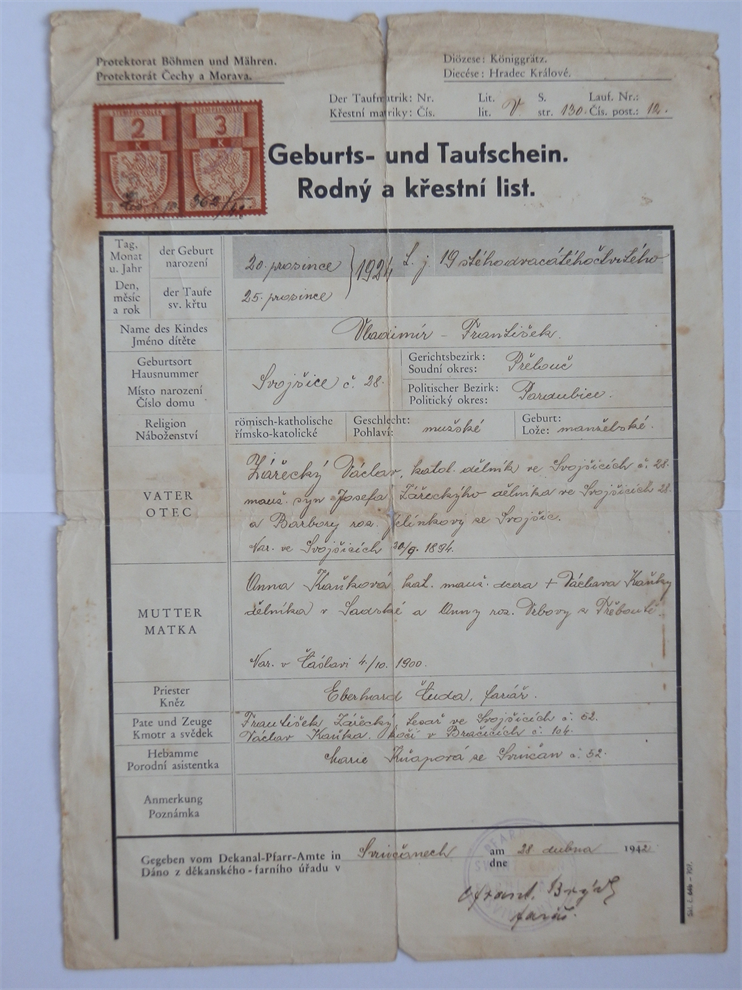 Protektorat Böhmen und Mähren.
Protektorát Čechy a Morava.
Diözese: Königgrätz.
Diecése: Hradec Králové.
Der Taufmatrik: Nr. Lit. S. Lauf. Nr.:
Křestní matriky: Čís. lit. V str. 130. Čís. post.: 12.
2 K
3 K
Geburts- und Taufschein.
Rodný a křestní list.
Tag, Monat u. Jahr
Den, měsíc a rok
der Geburt
narození
20. prosince 1924 t. j. 19stéhodvacátéhočtvrtého
der Taufe
sv. křtu
25. prosince
Name des Kindes
Jméno dítěte
Vladimír - František.
Geburtsort
Hausnummer
Místo narození
Číslo domu
Svojšice č. 28.
Gerichtsbezirk:
Soudní okres: Přelouč
Politischer Bezirk:
Politický okres: Pardubice.
Religion
Náboženství
römisch-katholische
římsko-katolické
Geschlecht:
Pohlaví: mužské
Geburt:
Lože: manželské.
VATER
OTEC
Zářecký Václav, katol. dělník ve Svojšicích č. 28.
manž. syn Josefa Zářeckýho dělníka ve Svojšicích 28
a Barbory roz. Jelínkovy ze Svojšic.
Nar. ve Svojšicích 30/9. 1894.
MUTTER
MATKA
Anna Kaňková, kat. manž. dcera + Václava Kaňky
dělníka v Sadské a Anny roz. Vrbovy z
Nar. v Čáslavi 4/10. 1900.
Priester
Kněz
Eberhard Čuda, farář.
Pate und Zeuge
Kmotr a svědek
František Zářecký, tesař ve Svojšicích č. 52.
Václav Kaňka, v č. 104.
Hebamme
Porodní asistentka
Marie Kňapová se Svinčan č. 52.
Anmerkung
Poznámka
Gegeben vom Dekanal-Pfarr-Amte in
Dáno z děkanského-farního úřadu v Svinčanech am
dne 28 dubna 1942
Frant.
farář.